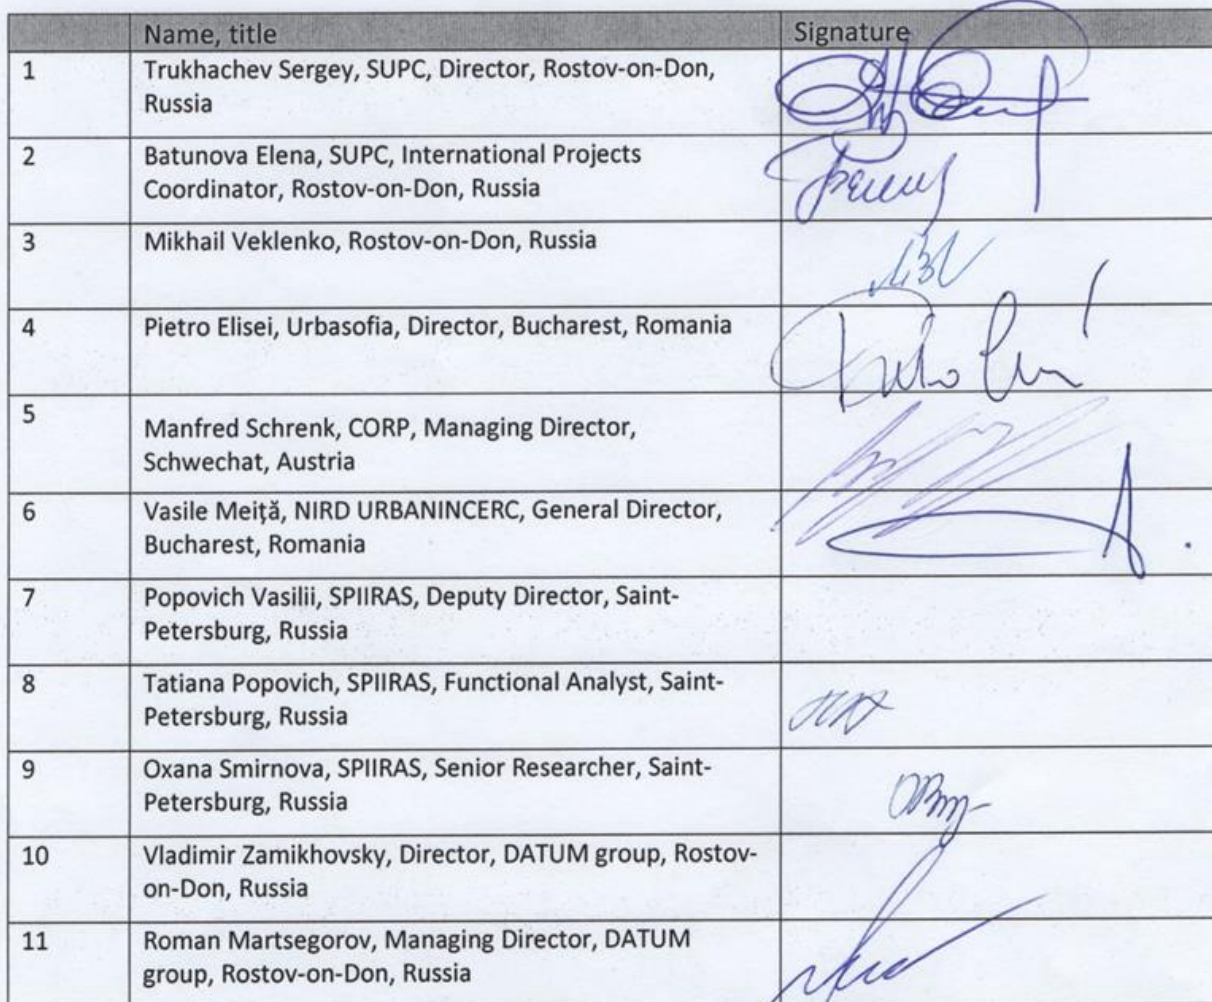 Name, title Signature
1 Trukhachev Sergey, SUPC, Director, Rostov-on-Don,
Russia
2 Batunova Elena, SUPC, International Projects
Coordinator, Rostov-on-Don, Russia
3 Mikhail Veklenko, Rostov-on-Don, Russia
4 Pietro Elisei, Urbasofia, Director, Bucharest, Romania
5
Manfred Schrenk, CORP, Managing Director,
Schwechat, Austria
6 Vasile Meiță, NIRD URBANINCERC, General Director,
Bucharest, Romania
7 Popovich Vasilii, SPIIRAS, Deputy Director, Saint-
Petersburg, Russia
8 Tatiana Popovich, SPIIRAS, Functional Analyst, Saint-
Petersburg, Russia
9 Oxana Smirnova, SPIIRAS, Senior Researcher, Saint-
Petersburg, Russia
10 Vladimir Zamikhovsky, Director, DATUM group, Rostov-
on-Don, Russia
11 Roman Martsegorov, Managing Director, DATUM
group, Rostov-on-Don, Russia